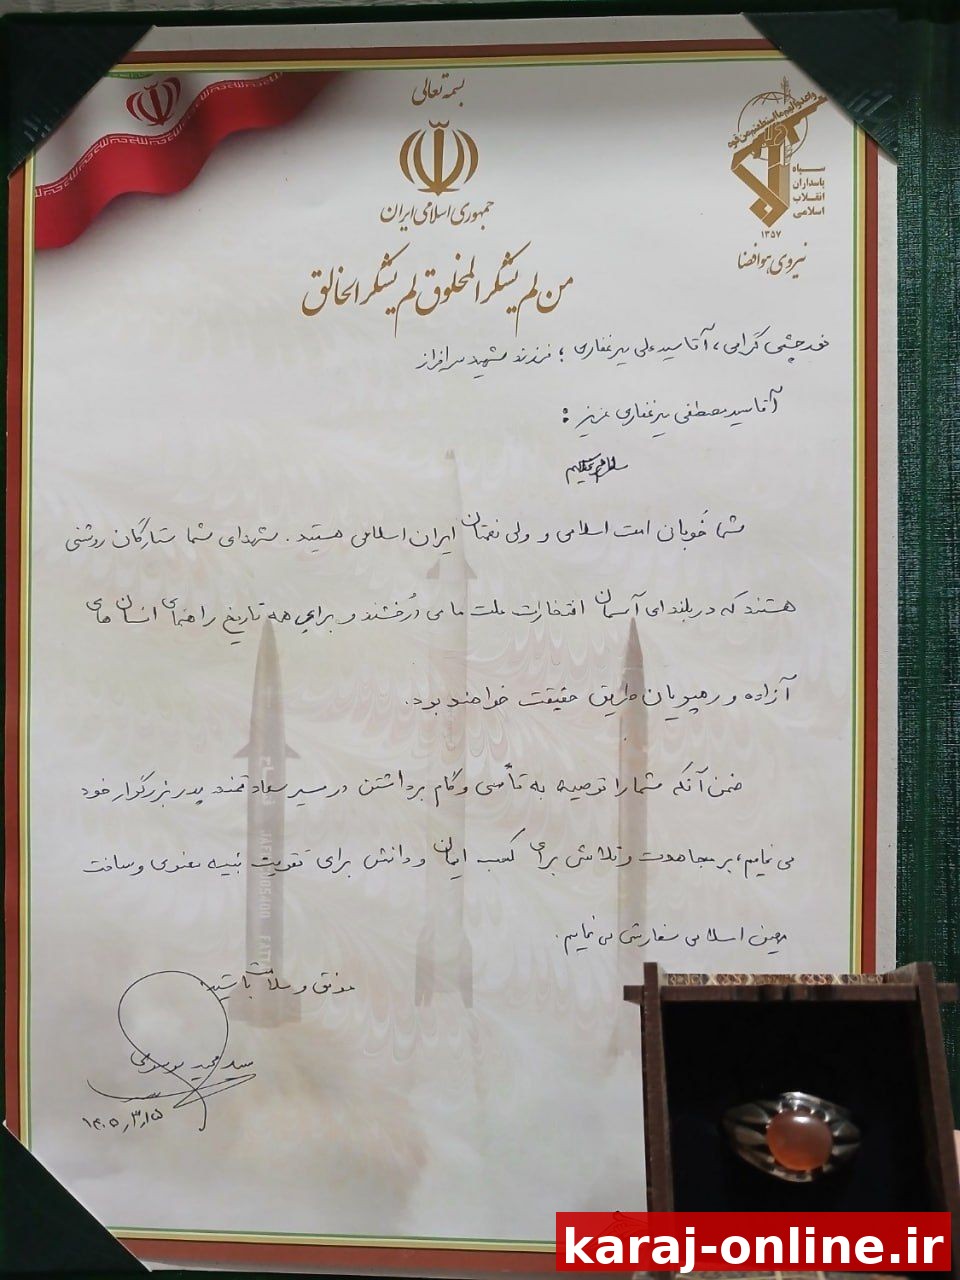 بسمه تعالی
جمهوری اسلامی ایران
واعدوا لهم ما استطعتم من قوة
سپاه
پاسداران
انقلاب
اسلامی
۱۳۵۷
نیروی هوافضا
من لم یشکر المخلوق لم یشکر الخالق
نور چشمی گرامی، آقا سید علی میرغفاری؛ فرزند شهید سرافراز
آقا سید مصطفی میرغفاری عزیز:
سلام علیکم
شما خوبان امت اسلامی و ولی نعمتان ایران اسلامی هستید. شهدای شما ستارگان روشنی
هستند که در بلندای آسمان افتخارات ملت ما می درخشند و برای همه تاریخ راهنمای انسان های
آزاده و رهپویان طریق حقیقت خواهند بود.
ضمن آنکه شما را توصیه به تأسی و گام برداشتن در مسیر سعادتمند پدر بزرگوار خود
می نمایم، بر مجاهدت و تلاش برای کسب ایمان و دانش برای تقویت بنیه معنوی و ساخت
میهن اسلامی سفارش می نمایم.
موفق و سلامت باشید
سید مجید موسوی
۱۴۰۵٫۳٫۱۵
karaj-online.ir